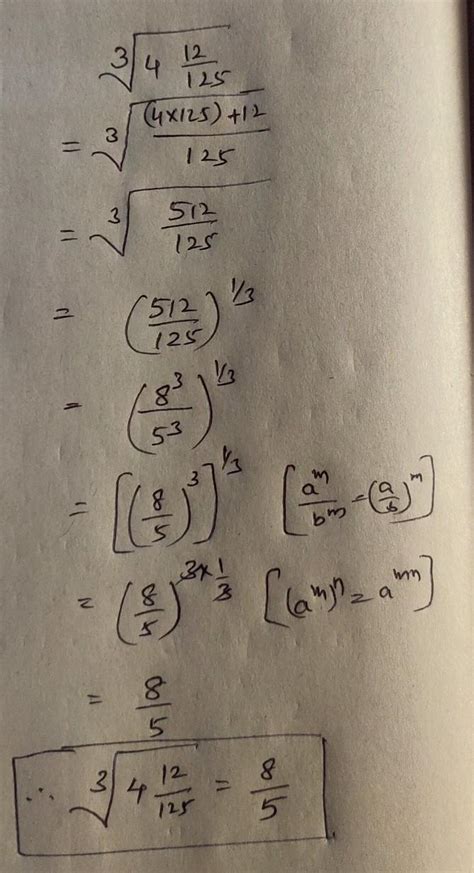 ∛(4 12/125)
= ∛(((4×125)+12)/125)
= ∛(512/125)
= (512/125)^(1/3)
= (8³/5³)^(1/3)
= [(8/5)³]^(1/3) [a^m/b^m = (a/b)^m]
= (8/5)^(3×1/3) [(a^m)^n = a^mn]
= 8/5
∴ ∛(4 12/125) = 8/5